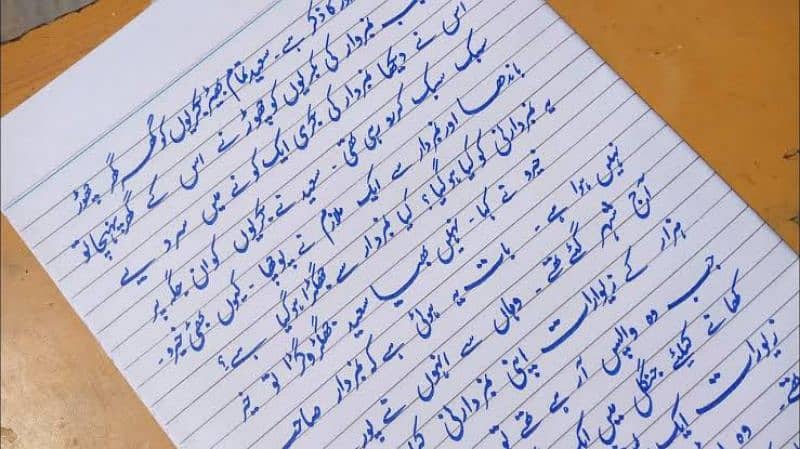 اور کا ذکر ہے۔ سعید تمام بھیڑ بکریوں کو گھر گھر چھوڑ
جب نمبردار کی بکریوں کو چھوڑنے اس کے گھر پہنچا تو
اس نے دیکھا نمبردار کی بکری ایک کونے میں سر دیے
سبک سبک کر رو رہی تھی۔ سعید نے بکریوں کو ان جگہ پر
باندھا اور نمبردار سے ایک ملازم نے پوچھا۔ کیوں بھئی خیرو۔
یہ نمبردارنی کو کیا ہو گیا؟ کیا نمبردار سے جھگڑا ہو گیا ہے؟
خیرو نے کہا۔ نہیں بھیا سعید جھگڑ وگڑا تو خیر
نہیں ہوا ہے۔ بات یہ ہوئی ہے کہ نمبردار صاحب
آج شہر گئے تھے۔ وہاں سے انہوں نے پور
ہزار کے زیورات اپنی نمبردارنی
جب وہ واپس آ رہے تھے تو
کھانے کیلئے جنگل میں ایک
زیورات ایک
تھے۔ وہ